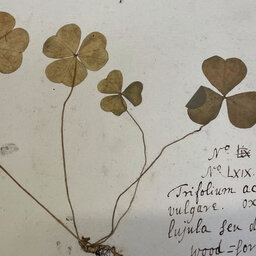 Nº LIX
Nº LXIX.
Trifolium ac
vulgare. ox
lujula seu d
wood=sor